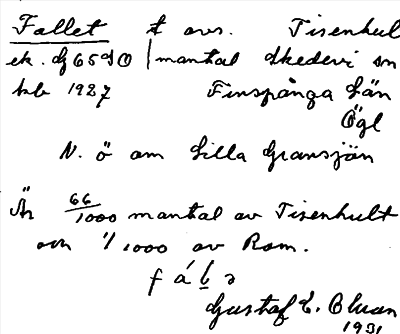 Fallet t avs. Tisenhult
ek. bl 65 d O mantal Skedevi sn
kb 1927 Finspånga Län
Ögl
N. ö om Lilla Gransjön
Är 66/1000 mantal av Tisenhult
och 1/1000 av Ram.
Gustaf E. Cluan
1931